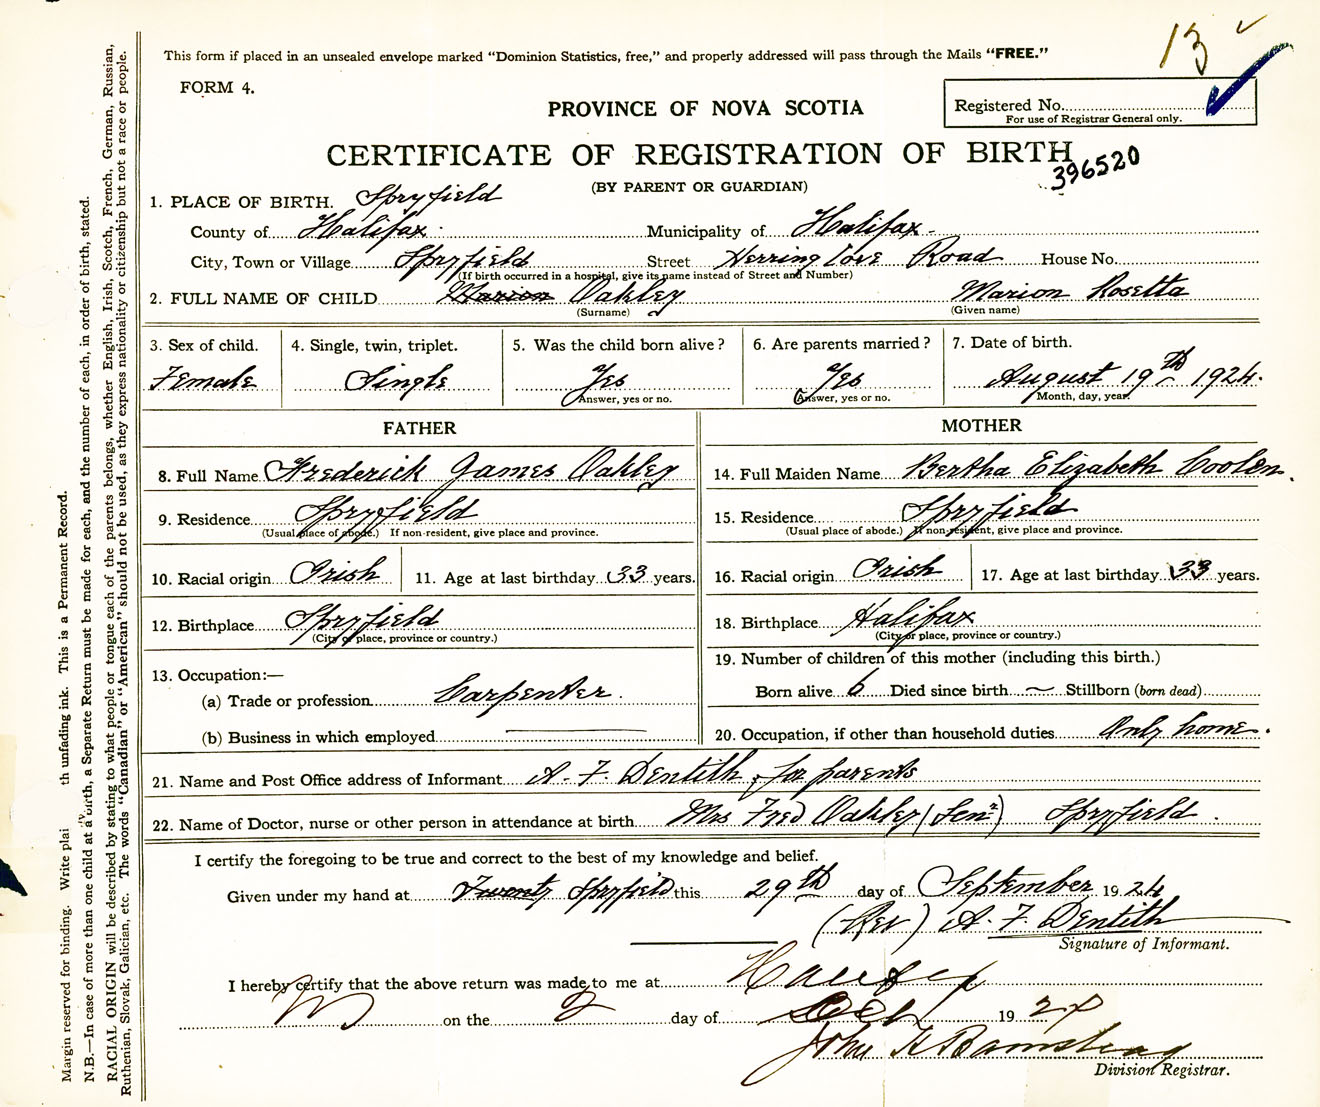 13 ✓
This form if placed in an unsealed envelope marked “Dominion Statistics, free,” and properly addressed will pass through the Mails “FREE.”
FORM 4.
PROVINCE OF NOVA SCOTIA
Registered No.
For use of Registrar General only.
CERTIFICATE OF REGISTRATION OF BIRTH
396520
(BY PARENT OR GUARDIAN)
1. PLACE OF BIRTH. Spryfield
County of Halifax Municipality of Halifax
City, Town or Village Spryfield Street Herring Cove Road House No.
(If birth occurred in a hospital, give its name instead of Street and Number)
2. FULL NAME OF CHILD Marion Oakley Marion Rosetta
(Surname) (Given name)
3. Sex of child. 4. Single, twin, triplet. 5. Was the child born alive? 6. Are parents married? 7. Date of birth.
Female Single Yes Yes August 19th 1924.
Answer, yes or no. Answer, yes or no. Month, day, year.
FATHER
8. Full Name Frederick James Oakley
9. Residence Spryfield
(Usual place of abode.) If non-resident, give place and province.
10. Racial origin Irish 11. Age at last birthday 33 years.
12. Birthplace Spryfield
(City or place, province or country.)
13. Occupation:—
(a) Trade or profession Carpenter.
(b) Business in which employed
MOTHER
14. Full Maiden Name Bertha Elizabeth Coolen.
15. Residence Spryfield
(Usual place of abode.) If non-resident, give place and province.
16. Racial origin Irish 17. Age at last birthday 33 years.
18. Birthplace Halifax
(City or place, province or country.)
19. Number of children of this mother (including this birth.)
Born alive 6 Died since birth — Stillborn (born dead)
20. Occupation, if other than household duties Only home.
21. Name and Post Office address of Informant A. F. Dentith for parents
22. Name of Doctor, nurse or other person in attendance at birth Mrs Fred Oakley (Senr) Spryfield.
I certify the foregoing to be true and correct to the best of my knowledge and belief.
Given under my hand at Twenty Spryfield this 29th day of September 1924
(Rev) A. F. Dentith
Signature of Informant.
I hereby certify that the above return was made to me at Halifax
on the 2 day of Oct 1924
John
Division Registrar.
Margin reserved for binding. Write plai th unfading ink. This is a Permanent Record.
N.B.—In case of more than one child at a birth, a Separate Return must be made for each, and the number of each, in order of birth, stated.
RACIAL ORIGIN will be described by stating to what people or tongue each of the parents belongs, whether English, Irish, Scotch, French, German, Russian,
Ruthenian, Slovak, Galician, etc. The words “Canadian” or “American” should not be used, as they express nationality or citizenship but not a race or people.